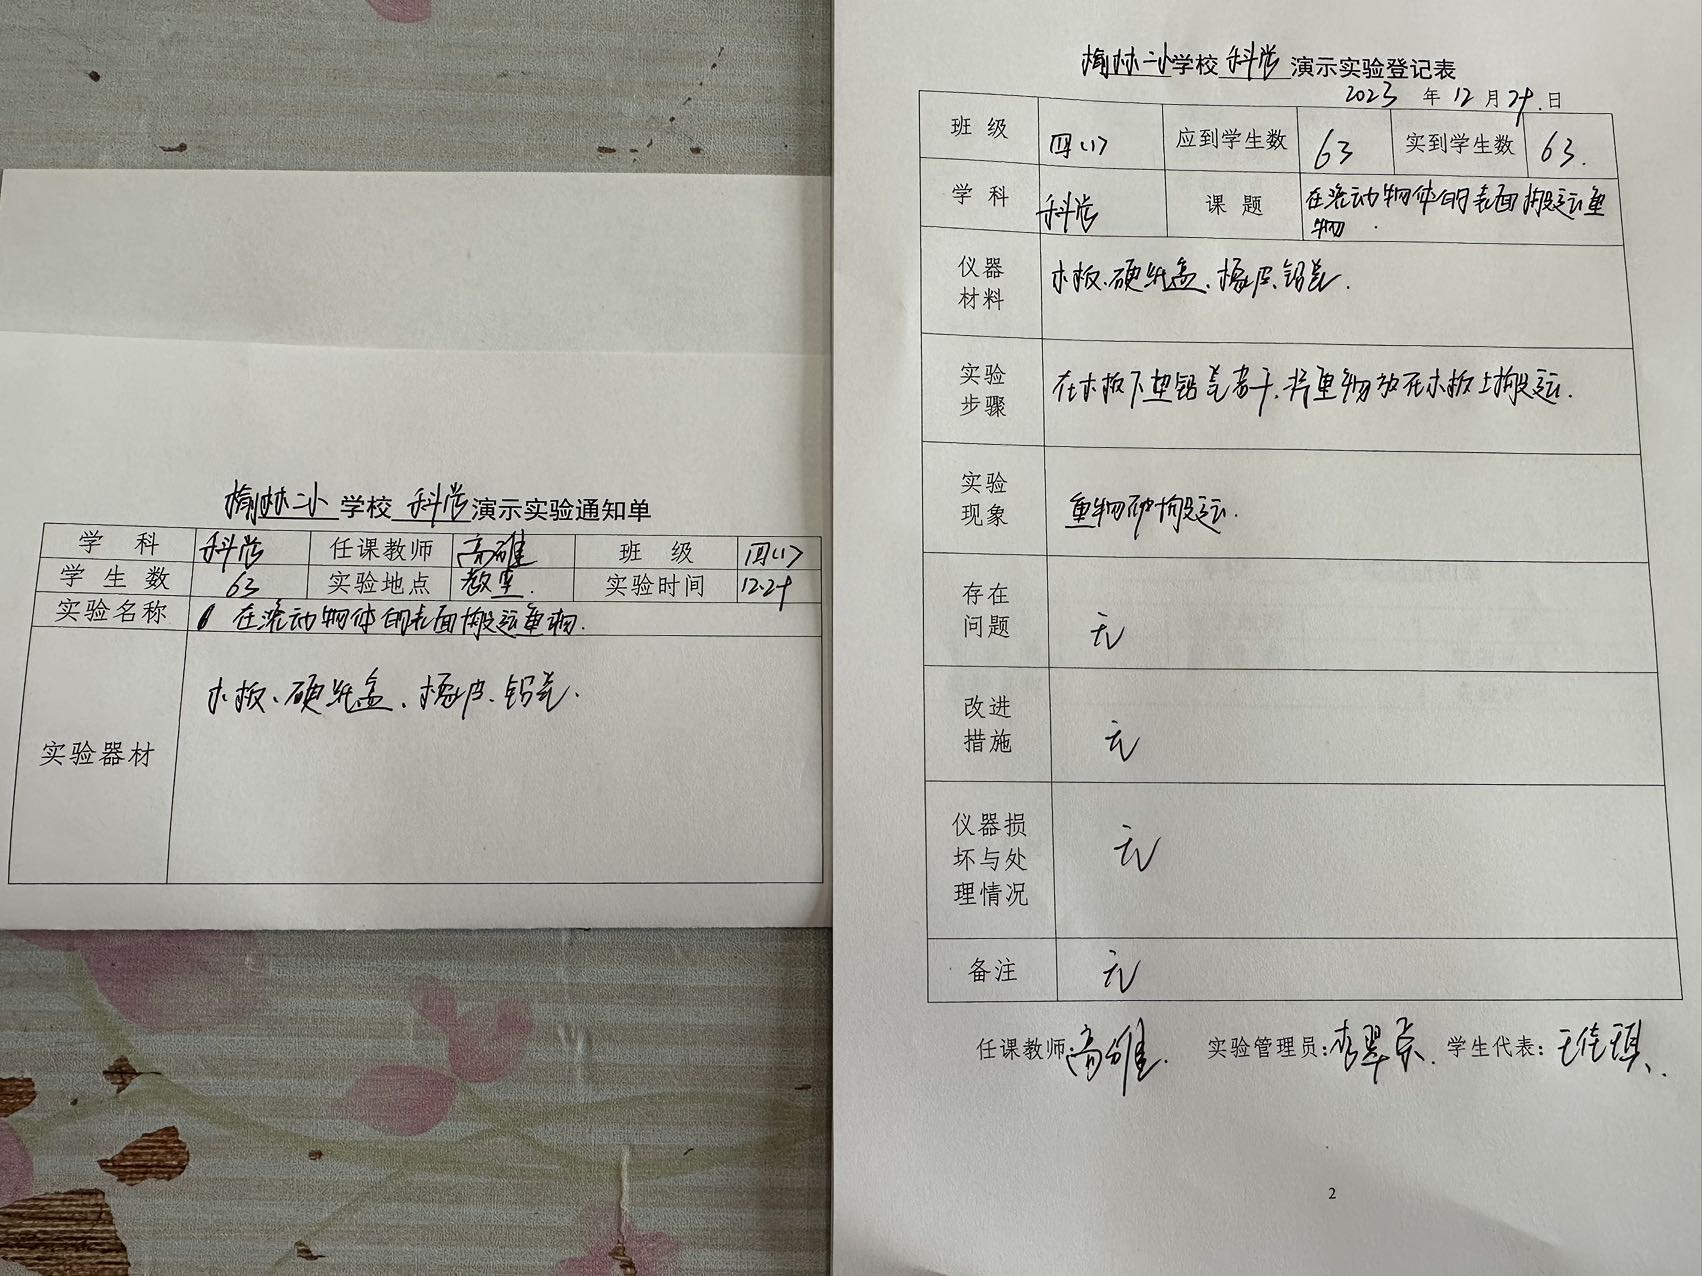 榆林二小学校 科学 演示实验通知单
学 科 科学 任课教师 高雄 班 级 四(1)
学 生 数 63 实验地点 教室. 实验时间 12.29
实验名称 在滚动物体的表面搬运重物.
木板、硬纸盒、橡皮、铅笔.
实验器材
榆林二小学校 科学 演示实验登记表
2023 年 12 月 29 日
班 级 四(1) 应到学生数 63 实到学生数 63.
学 科 科学 课 题 在滚动物体的表面搬运重
物.
仪器
材料
木板、硬纸盒、橡皮、铅笔.
实验
步骤
在木板下垫铅笔若干,将重物放在木板上搬运.
实验
现象
重物被搬运.
存在
问题
无
改进
措施
无
仪器损
坏与处
理情况
无
备注 无
任课教师:高雄. 实验管理员:李翠 学生代表:王佳琪.
2